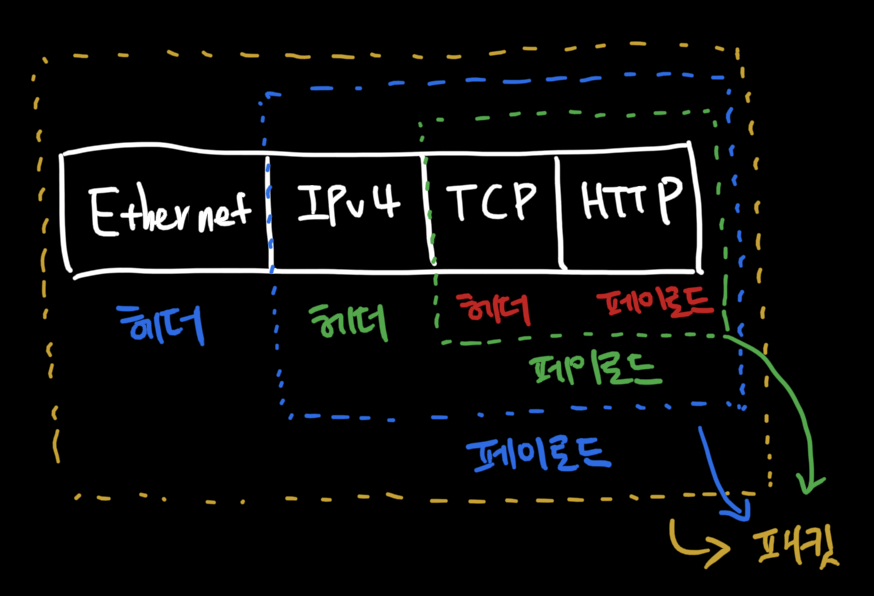 Ethernet IPv4 TCP HTTP
헤더 헤더 헤더 페이로드
페이로드
페이로드
패킷